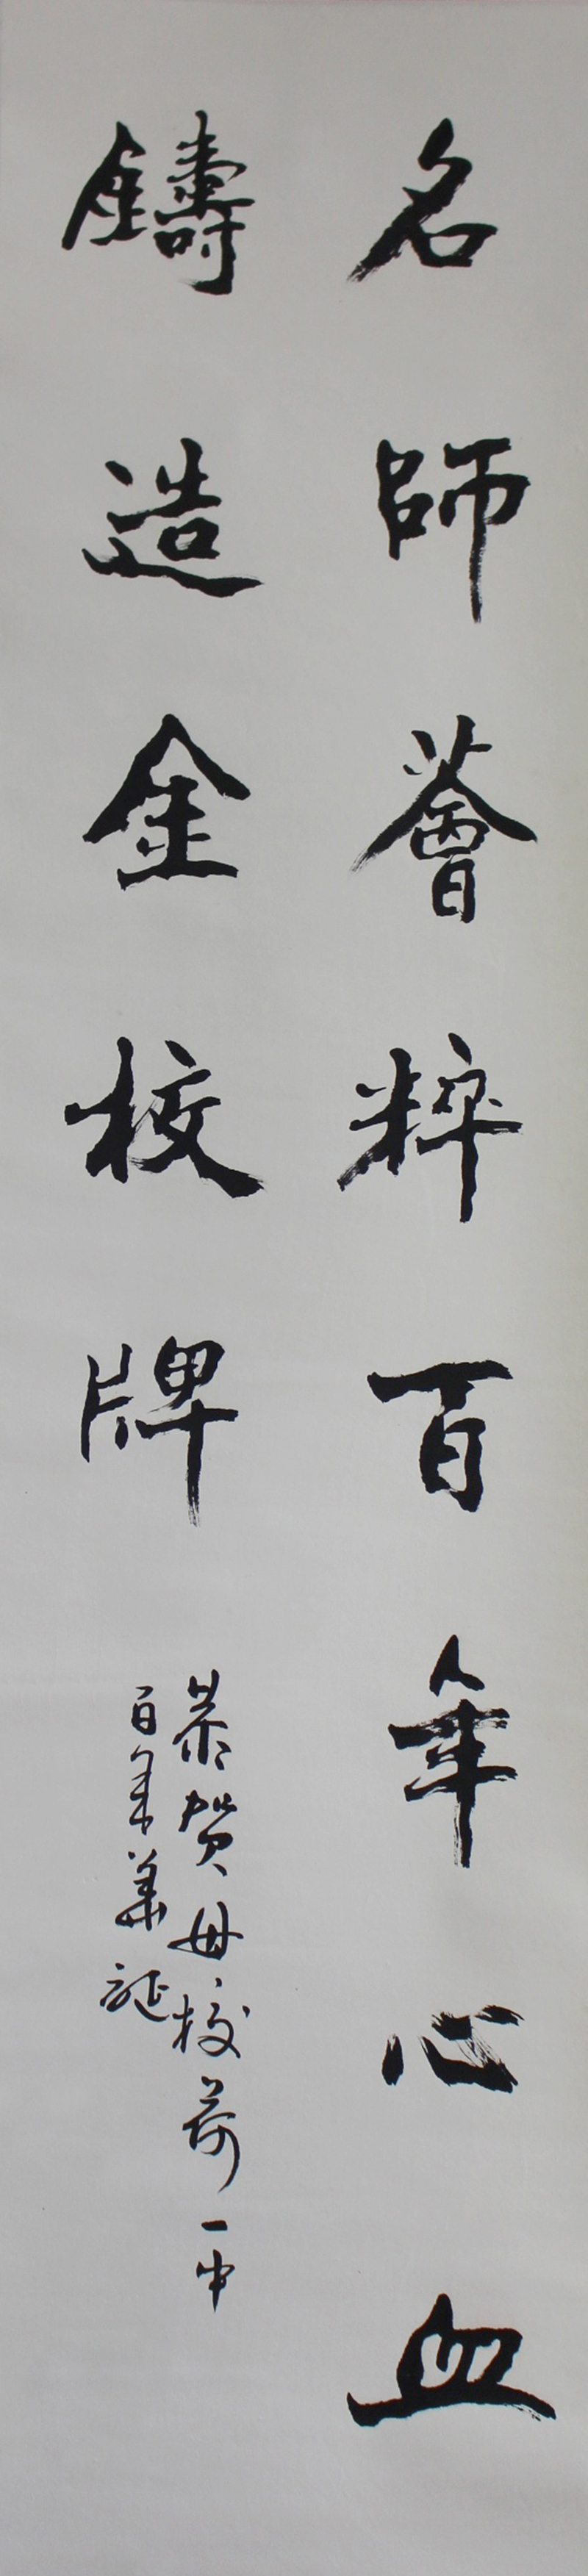 名師薈粹百年心血
鑄造金校牌
恭賀母校荷一中
百年華誕